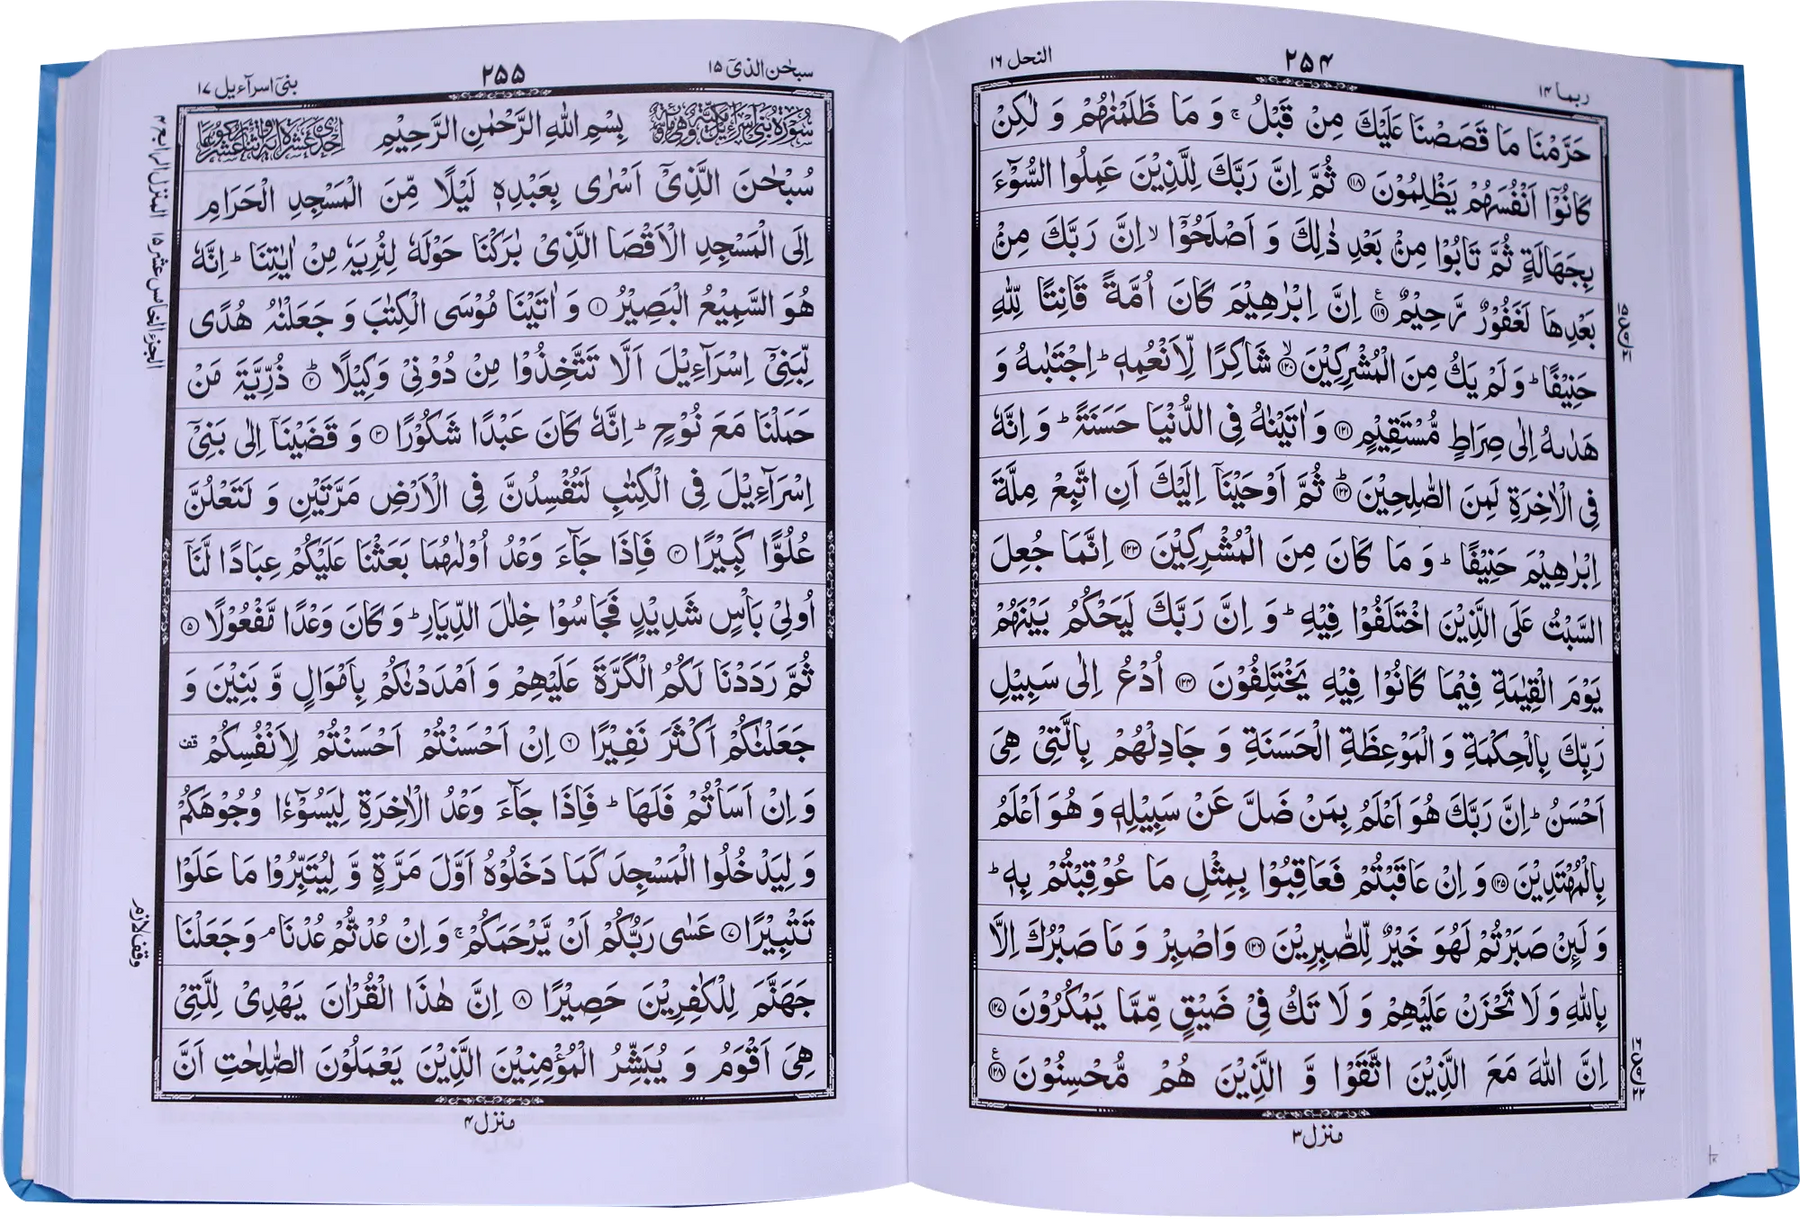 ربما ۱۴
۲۵۴
النحل ۱۶
حَرَّمْنَا مَا قَصَصْنَا عَلَيْكَ مِنْ قَبْلُ ۚ وَ مَا ظَلَمْنٰهُمْ وَ لٰكِنْ
كَانُوْۤا اَنْفُسَهُمْ يَظْلِمُوْنَ ۝۱۱۸ ثُمَّ اِنَّ رَبَّكَ لِلَّذِيْنَ عَمِلُوا السُّوْٓءَ
بِجَهَالَةٍ ثُمَّ تَابُوْا مِنْۢ بَعْدِ ذٰلِكَ وَ اَصْلَحُوْۤا ۙ اِنَّ رَبَّكَ مِنْۢ
بَعْدِهَا لَغَفُوْرٌ رَّحِيْمٌ ۝۱۱۹ اِنَّ اِبْرٰهِيْمَ كَانَ اُمَّةً قَانِتًا لِّلّٰهِ
حَنِيْفًا ؕ وَ لَمْ يَكُ مِنَ الْمُشْرِكِيْنَ ۝۱۲۰ شَاكِرًا لِّاَنْعُمِهٖ ؕ اِجْتَبٰىهُ وَ
هَدٰىهُ اِلٰى صِرَاطٍ مُّسْتَقِيْمٍ ۝۱۲۱ وَ اٰتَيْنٰهُ فِى الدُّنْيَا حَسَنَةً ؕ وَ اِنَّهٗ
فِى الْاٰخِرَةِ لَمِنَ الصّٰلِحِيْنَ ۝۱۲۲ ثُمَّ اَوْحَيْنَاۤ اِلَيْكَ اَنِ اتَّبِعْ مِلَّةَ
اِبْرٰهِيْمَ حَنِيْفًا ؕ وَ مَا كَانَ مِنَ الْمُشْرِكِيْنَ ۝۱۲۳ اِنَّمَا جُعِلَ
السَّبْتُ عَلَى الَّذِيْنَ اخْتَلَفُوْا فِيْهِ ؕ وَ اِنَّ رَبَّكَ لَيَحْكُمُ بَيْنَهُمْ
يَوْمَ الْقِيٰمَةِ فِيْمَا كَانُوْا فِيْهِ يَخْتَلِفُوْنَ ۝۱۲۴ اُدْعُ اِلٰى سَبِيْلِ
رَبِّكَ بِالْحِكْمَةِ وَ الْمَوْعِظَةِ الْحَسَنَةِ وَ جَادِلْهُمْ بِالَّتِىْ هِىَ
اَحْسَنُ ؕ اِنَّ رَبَّكَ هُوَ اَعْلَمُ بِمَنْ ضَلَّ عَنْ سَبِيْلِهٖ وَ هُوَ اَعْلَمُ
بِالْمُهْتَدِيْنَ ۝۱۲۵ وَ اِنْ عَاقَبْتُمْ فَعَاقِبُوْا بِمِثْلِ مَا عُوْقِبْتُمْ بِهٖ ؕ
وَ لَئِنْ صَبَرْتُمْ لَهُوَ خَيْرٌ لِّلصّٰبِرِيْنَ ۝۱۲۶ وَاصْبِرْ وَ مَا صَبْرُكَ اِلَّا
بِاللّٰهِ وَ لَا تَحْزَنْ عَلَيْهِمْ وَ لَا تَكُ فِىْ ضَيْقٍ مِّمَّا يَمْكُرُوْنَ ۝۱۲۷
اِنَّ اللّٰهَ مَعَ الَّذِيْنَ اتَّقَوْا وَّ الَّذِيْنَ هُمْ مُّحْسِنُوْنَ ۝۱۲۸
منزل ۳
سبحٰن الذیٓ ۱۵
۲۵۵
بنیٓ اسرآءیل ۱۷
بِسْمِ اللّٰهِ الرَّحْمٰنِ الرَّحِيْمِ
سُبْحٰنَ الَّذِىْۤ اَسْرٰى بِعَبْدِهٖ لَيْلًا مِّنَ الْمَسْجِدِ الْحَرَامِ
اِلَى الْمَسْجِدِ الْاَقْصَا الَّذِىْ بٰرَكْنَا حَوْلَهٗ لِنُرِيَهٗ مِنْ اٰيٰتِنَا ؕ اِنَّهٗ
هُوَ السَّمِيْعُ الْبَصِيْرُ ۝۱ وَ اٰتَيْنَا مُوْسَى الْكِتٰبَ وَ جَعَلْنٰهُ هُدًى
لِّبَنِىْۤ اِسْرَآءِيْلَ اَلَّا تَتَّخِذُوْا مِنْ دُوْنِىْ وَكِيْلًا ؕ ۝۲ ذُرِّيَّةَ مَنْ
حَمَلْنَا مَعَ نُوْحٍ ؕ اِنَّهٗ كَانَ عَبْدًا شَكُوْرًا ۝۳ وَ قَضَيْنَاۤ اِلٰى بَنِىْۤ
اِسْرَآءِيْلَ فِى الْكِتٰبِ لَتُفْسِدُنَّ فِى الْاَرْضِ مَرَّتَيْنِ وَ لَتَعْلُنَّ
عُلُوًّا كَبِيْرًا ۝۴ فَاِذَا جَآءَ وَعْدُ اُوْلٰىهُمَا بَعَثْنَا عَلَيْكُمْ عِبَادًا لَّنَاۤ
اُولِىْ بَاْسٍ شَدِيْدٍ فَجَاسُوْا خِلٰلَ الدِّيَارِ ؕ وَ كَانَ وَعْدًا مَّفْعُوْلًا ۝۵
ثُمَّ رَدَدْنَا لَكُمُ الْكَرَّةَ عَلَيْهِمْ وَ اَمْدَدْنٰكُمْ بِاَمْوَالٍ وَّ بَنِيْنَ وَ
جَعَلْنٰكُمْ اَكْثَرَ نَفِيْرًا ۝۶ اِنْ اَحْسَنْتُمْ اَحْسَنْتُمْ لِاَنْفُسِكُمْ قف
وَ اِنْ اَسَاْتُمْ فَلَهَا ؕ فَاِذَا جَآءَ وَعْدُ الْاٰخِرَةِ لِيَسُوْٓءٗا وُجُوْهَكُمْ
وَ لِيَدْخُلُوا الْمَسْجِدَ كَمَا دَخَلُوْهُ اَوَّلَ مَرَّةٍ وَّ لِيُتَبِّرُوْا مَا عَلَوْا
تَتْبِيْرًا ۝۷ عَسٰى رَبُّكُمْ اَنْ يَّرْحَمَكُمْ ۚ وَ اِنْ عُدْتُّمْ عُدْنَا ۘ وَ جَعَلْنَا
جَهَنَّمَ لِلْكٰفِرِيْنَ حَصِيْرًا ۝۸ اِنَّ هٰذَا الْقُرْاٰنَ يَهْدِىْ لِلَّتِىْ
هِىَ اَقْوَمُ وَ يُبَشِّرُ الْمُؤْمِنِيْنَ الَّذِيْنَ يَعْمَلُوْنَ الصّٰلِحٰتِ اَنَّ
منزل ۴
المنزل الرابع ۴
الجزء الخامس عشر ۱۵
وقف لازم